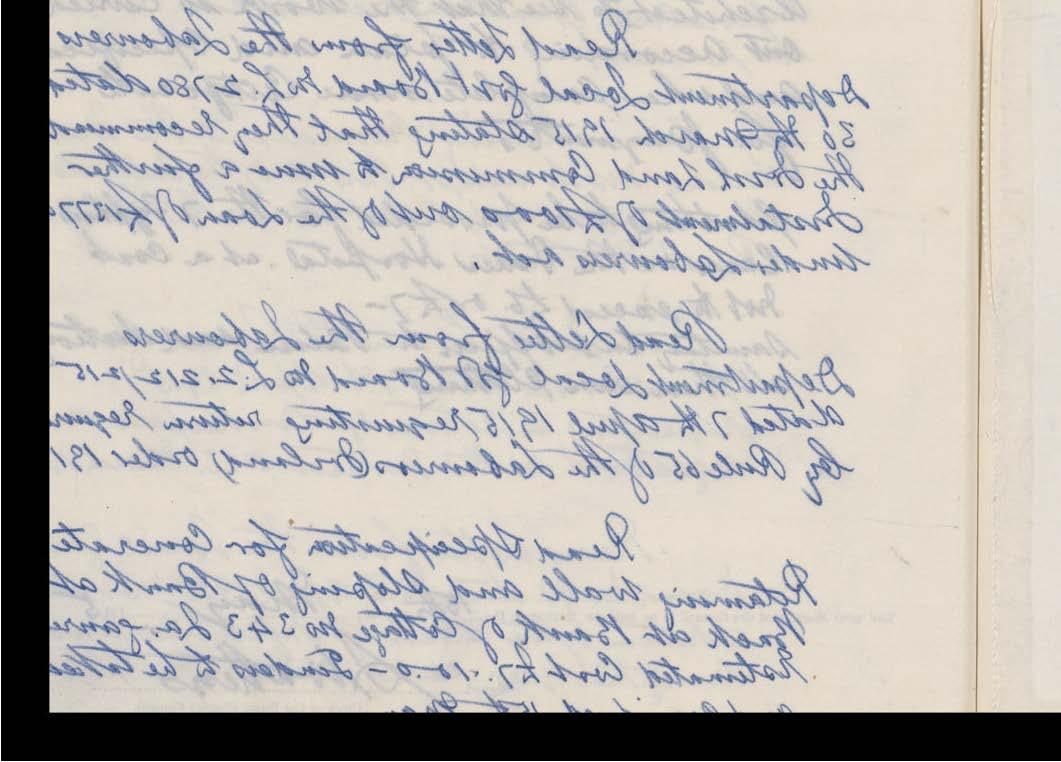 Read Letter from the Labourers
Department Local Govt Board No L. 2780 dated
30th March 1915 stating that they recommend
the Irish Land Commission to issue a further
Instalment of £1000 out of the Loan of £1377
Under Labourers Act.
Read Letter from the Labourers
Department Local Govt Board No L. 2.212/2-15
dated 7th April 1915 requesting return requir
by Rule 65 of the Labourers Ireland order 191
Read Specification for Concrete
Retaining Wall and sloping of Bank at
back at Bank of Cottage No 343 La.
Estimated Cost £7.-10-0 - Tenders to be taken